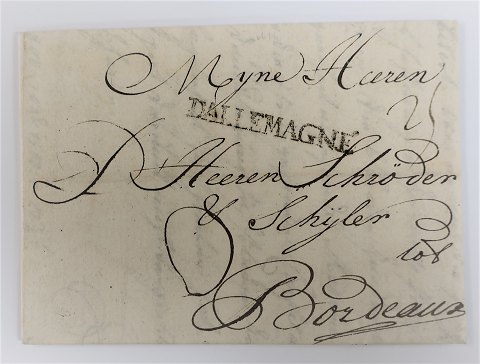 Myne Heeren
DALLEMAGNE
25
D Heeren Schröder
& Schÿler
tot
Bordeaux